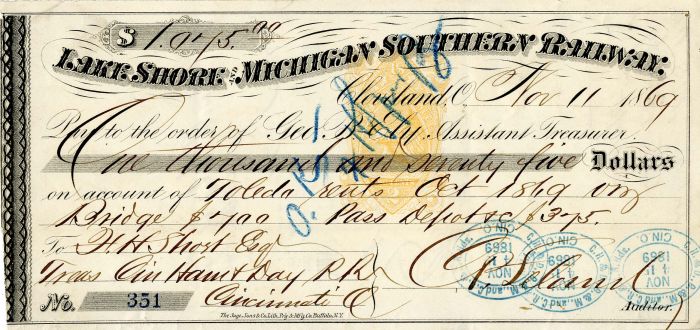 $ 1,075.00
LAKE SHORE AND MICHIGAN SOUTHERN RAILWAY.
Cleveland, O. Nov 11 1869
Pay to the order of Geo. B. Ely Assistant Treasurer.
One thousand and seventy five Dollars
on account of Toledo rents Oct 1869 viz
Bridge $700 Pass Depot &c $375.
To F. H. Short Esq
Treas Cin Ham & Day R R
Cincinnati O
No. 351
Auditor.
The Sage, Sons & Co. Lith. Ptg & Mfg Co. Buffalo, N.Y.
NOV
11
1869
CIN. O.